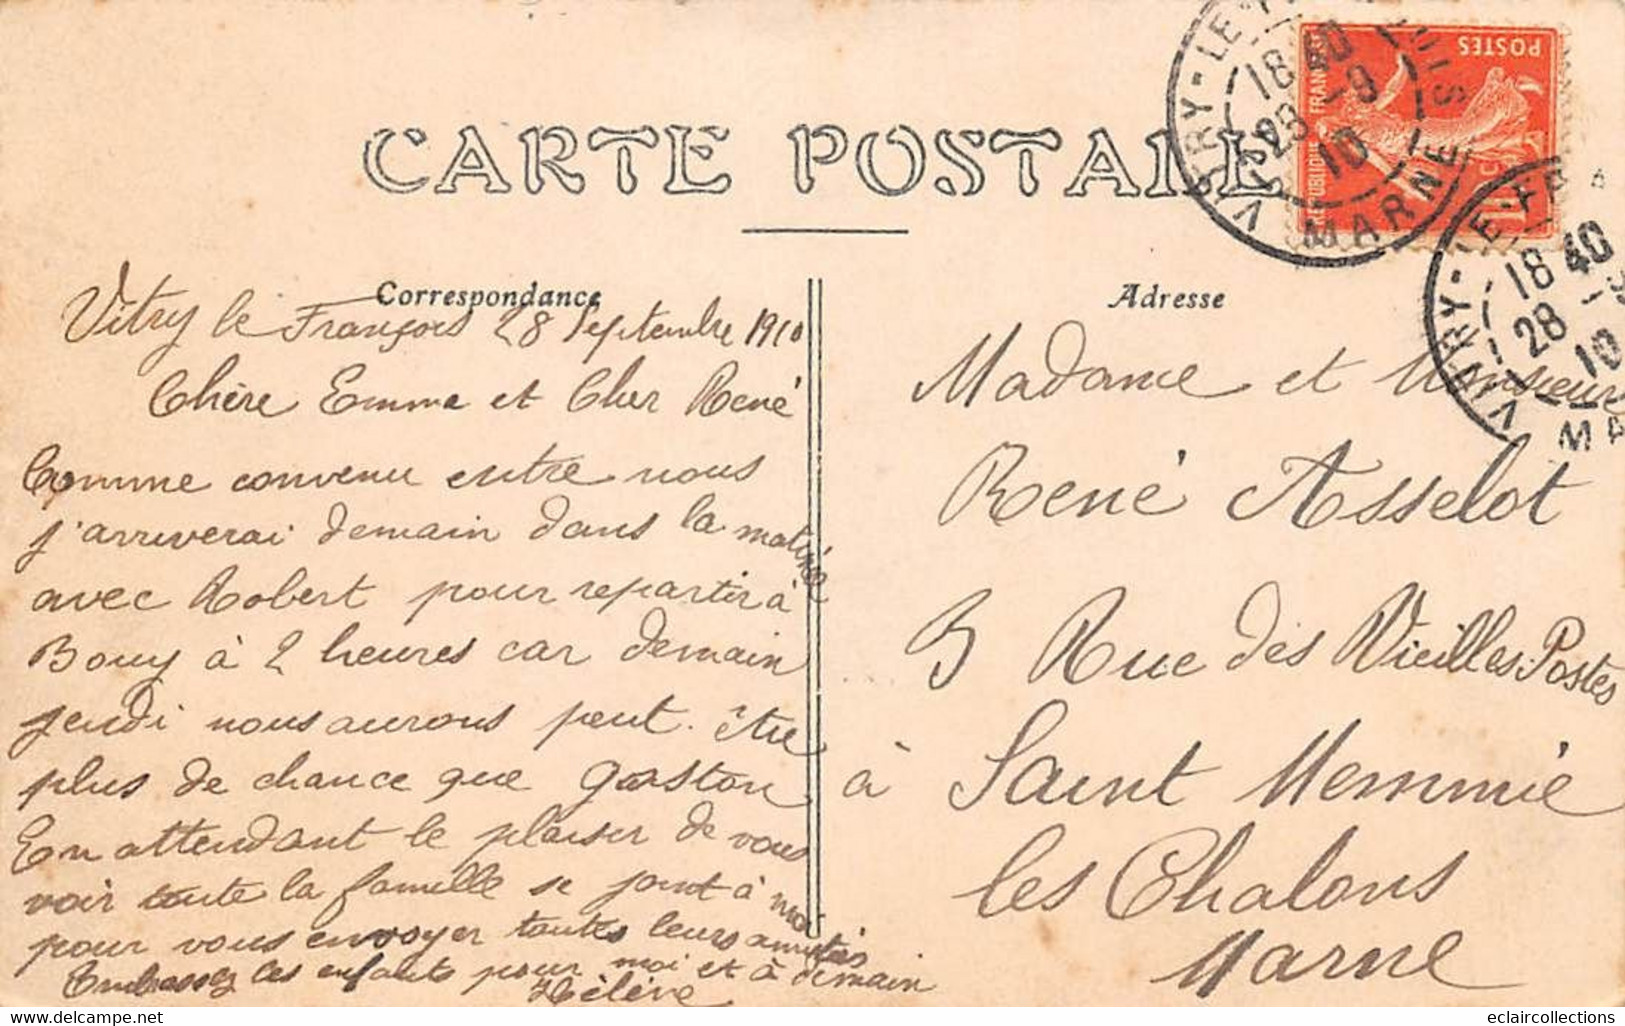 CARTE POSTALE
Correspondance
Adresse
POSTES
VITRY-LE-
18 40
28 -9
10
MARNE
VITRY-LE-FR
18 40
28 -9
10
MA
Vitry le François 28 Septembre 1910
Chère Emma et Cher René
Comme convenu entre nous
j'arriverai demain dans la matinée
avec Robert pour repartir à
Bouy à 2 heures car demain
jeudi nous aurons peut. être
plus de chance que Gaston
En attendant le plaisir de vous
voir toute la famille se joint à moi
pour vous envoyer toutes leurs amitiés
Embrassez les enfants pour moi et à demain
Hélène
Madame et Monsieur
René Asselot
3 Rue des Vieilles Postes
à Saint Memmie
les Chalons
Marne
eclaircollections
www.delcampe.net